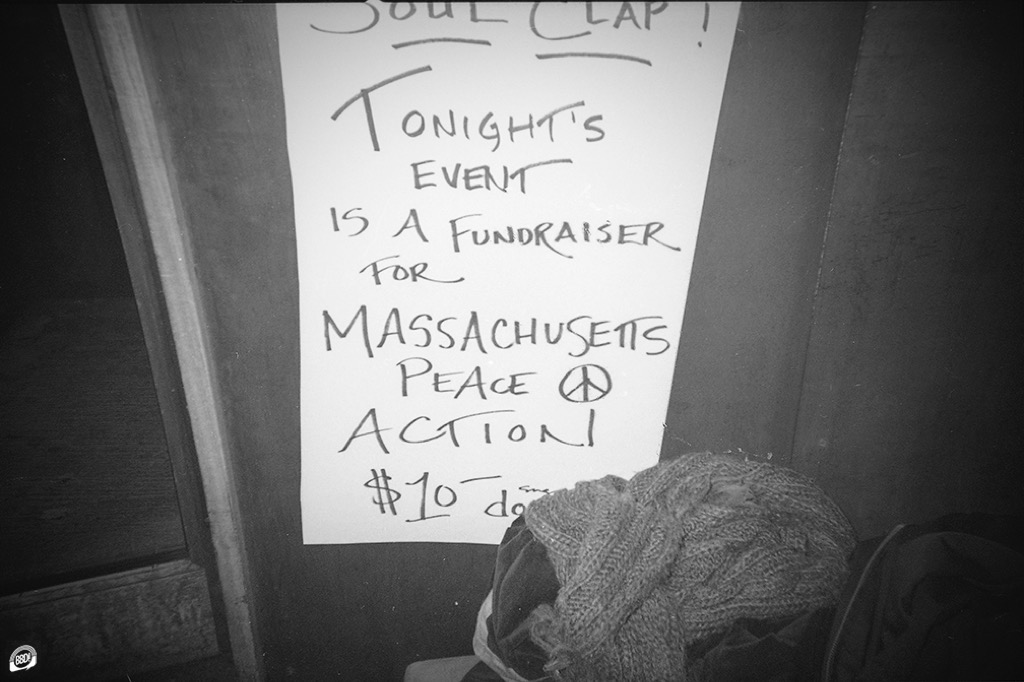 SOUL CLAP!
TONIGHT'S
EVENT
IS A FUNDRAISER
FOR
MASSACHUSETTS
PEACE ☮
ACTION!
$10-
BBD!